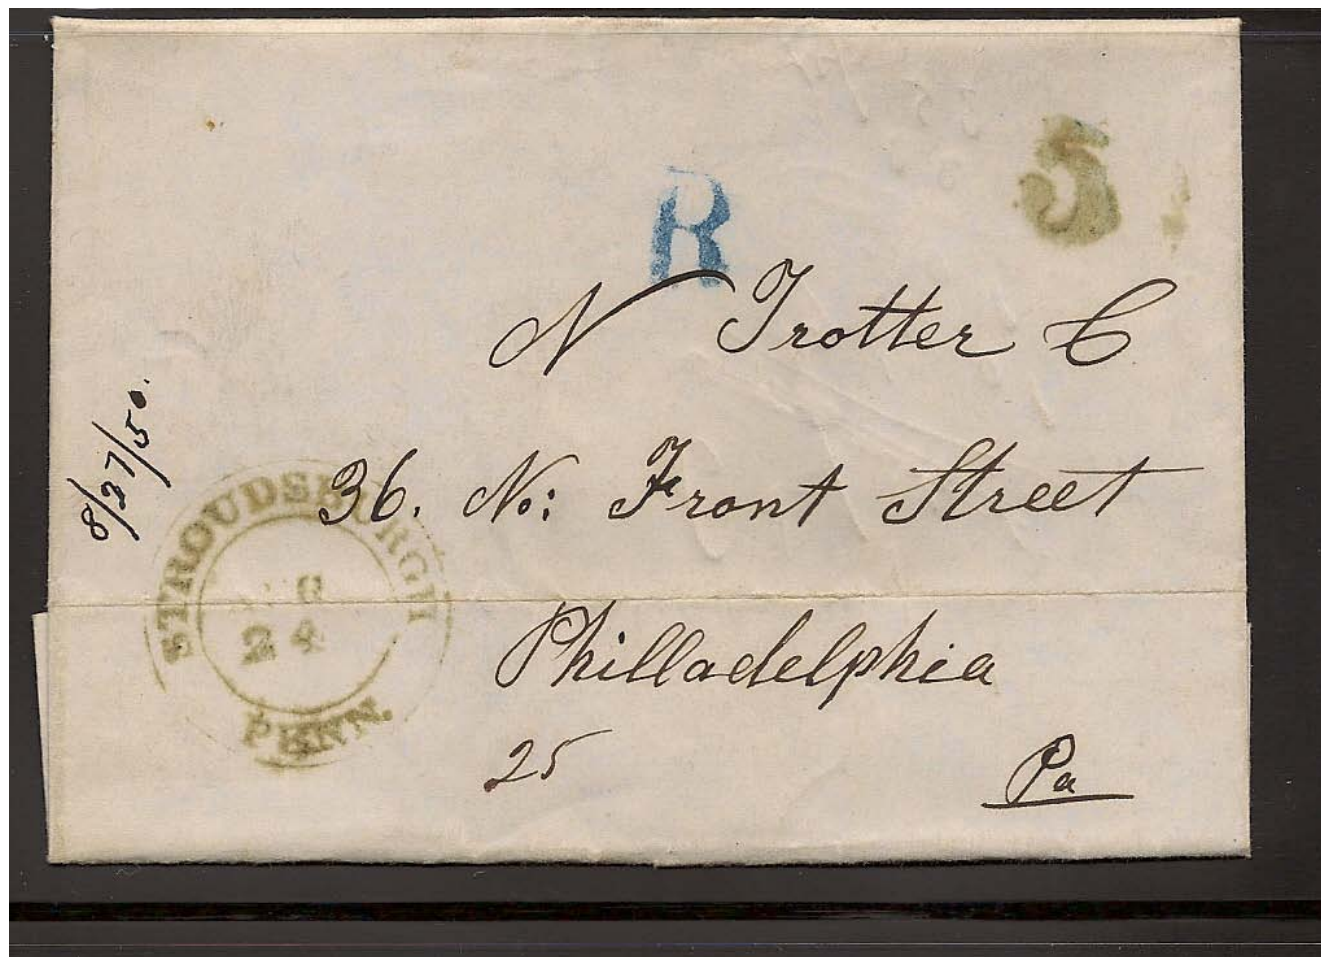 5
R
N Trotter C
36. No: Front Street
Philladelphia
25
Pa
8/27/50.
STROUDSBURGH
24
PENN.